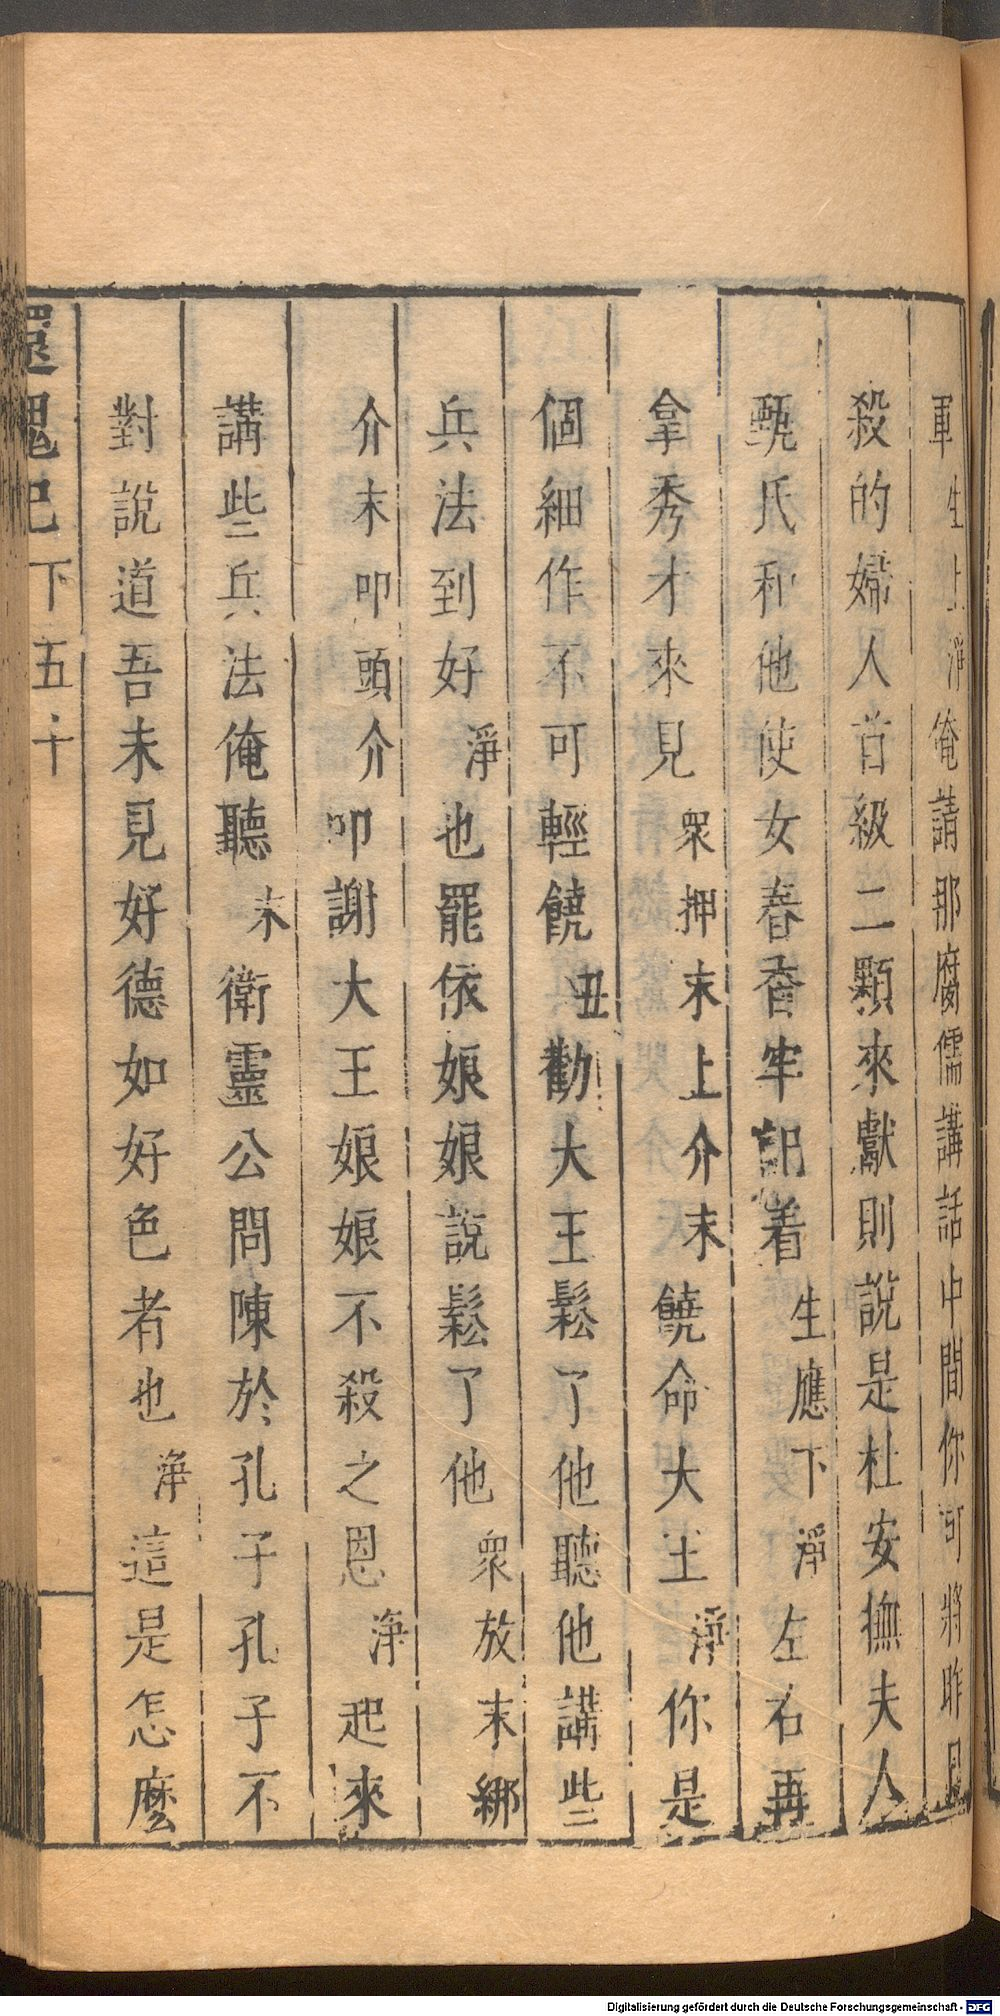 軍生上淨俺請那腐儒講話中間你可將昨日
殺的婦人首級二顆來獻則說是杜安撫夫人
甄氏和他使女春香牢記着生應下淨左右再
拿秀才來見眾押末上介末饒命大王淨你是
個細作不可輕饒丑勸大王鬆了他聽他講些
兵法到好淨也罷依娘娘說鬆了他眾放末綁
介末叩頭介叩謝大王娘娘不殺之恩淨起來
講些兵法俺聽末衛靈公問陳於孔子孔子不
對說道吾未見好德如好色者也淨這是怎麼
還魂記下五十
Digitalisierung gefördert durch die Deutsche Forschungsgemeinschaft - DFG